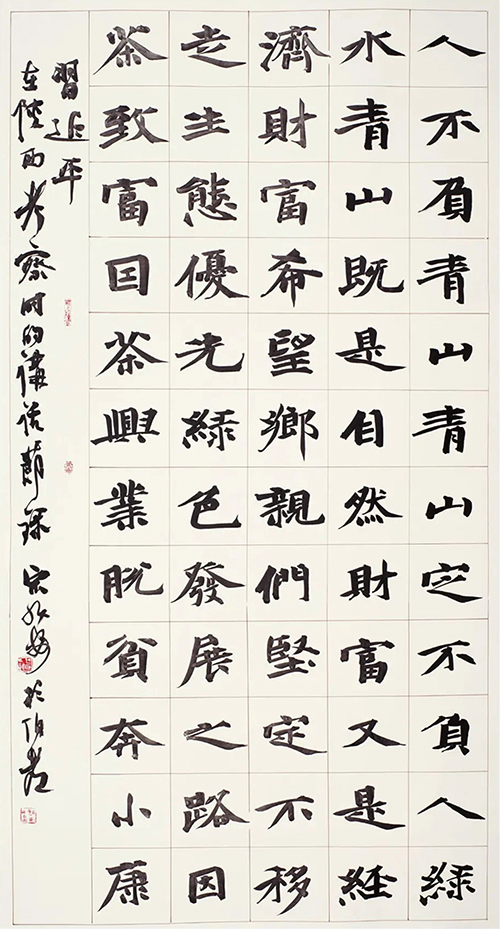 人不負青山青山定不負人綠
水青山既是自然財富又是経
濟財富希望鄉親們堅定不移
走生態優先綠色發展之路因
茶致富囙茶興業脫貧奔小康
習近平
在陝西考察时的講話節錄